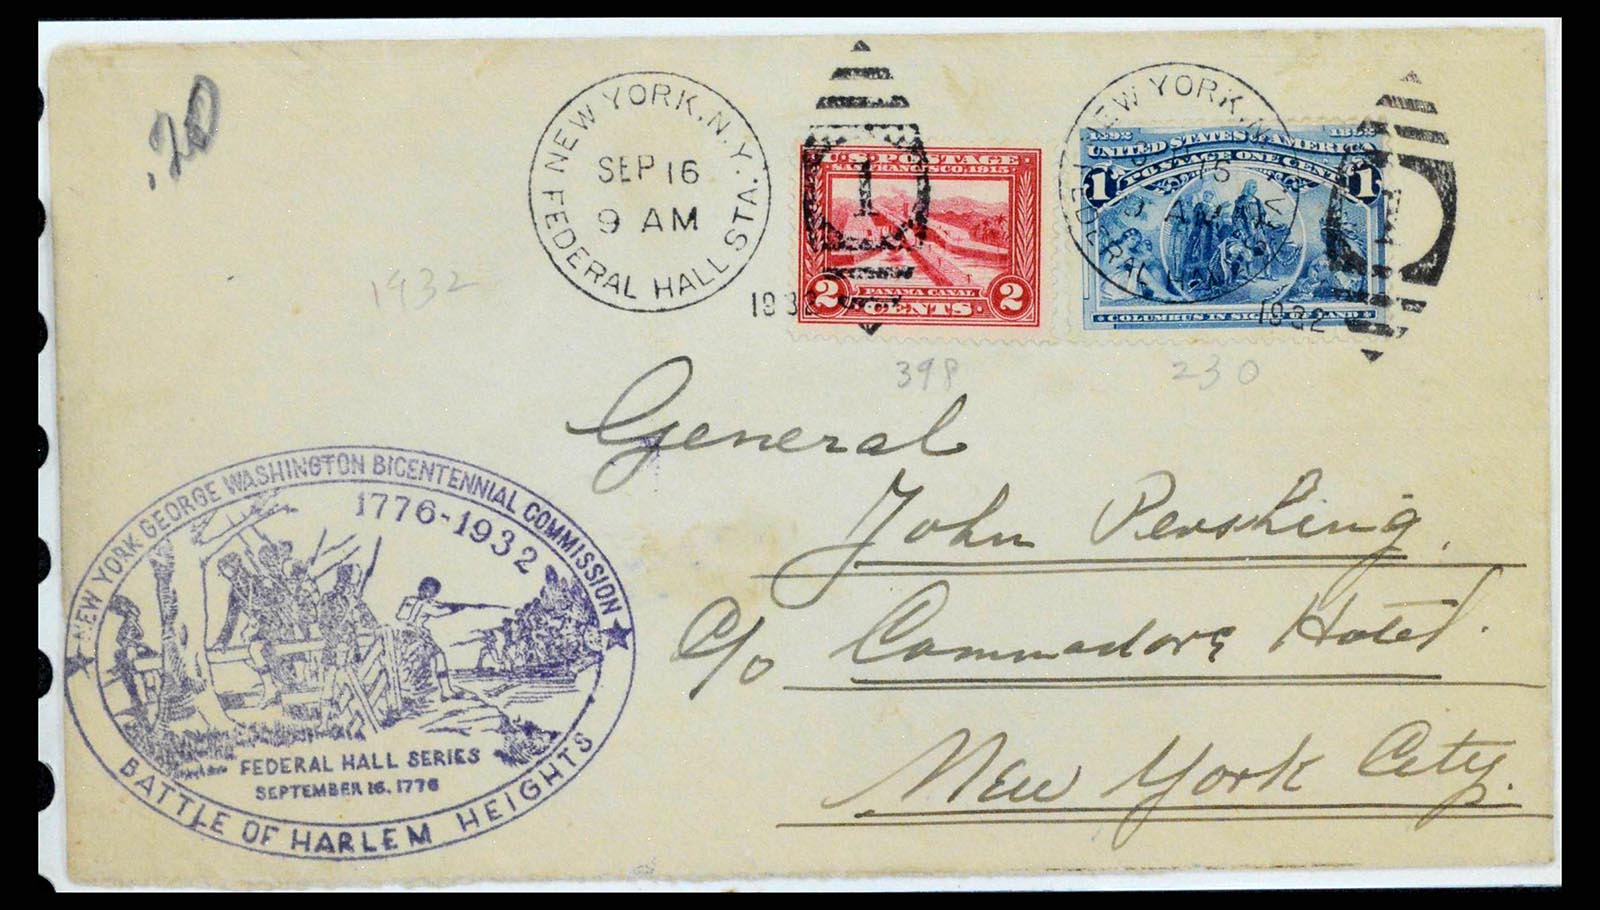 .20
NEW YORK, N.Y.
SEP 16
9 AM
FEDERAL HALL STA.
1932
1
U.S. POSTAGE
SAN FRANCISCO, 1915
PANAMA CANAL
2 CENTS 2
NEW YORK, N.Y.
FEDERAL HALL STA.
1932
1492 1892
UNITED STATES OF AMERICA
POSTAGE ONE CENT
1 1
COLUMBUS IN SIGHT OF LAND
1932
398
230
General
John Pershing.
C/o Commodore Hotel.
New York City.
NEW YORK GEORGE WASHINGTON BICENTENNIAL COMMISSION
1776-1932
FEDERAL HALL SERIES
SEPTEMBER 16, 1776
BATTLE OF HARLEM HEIGHTS